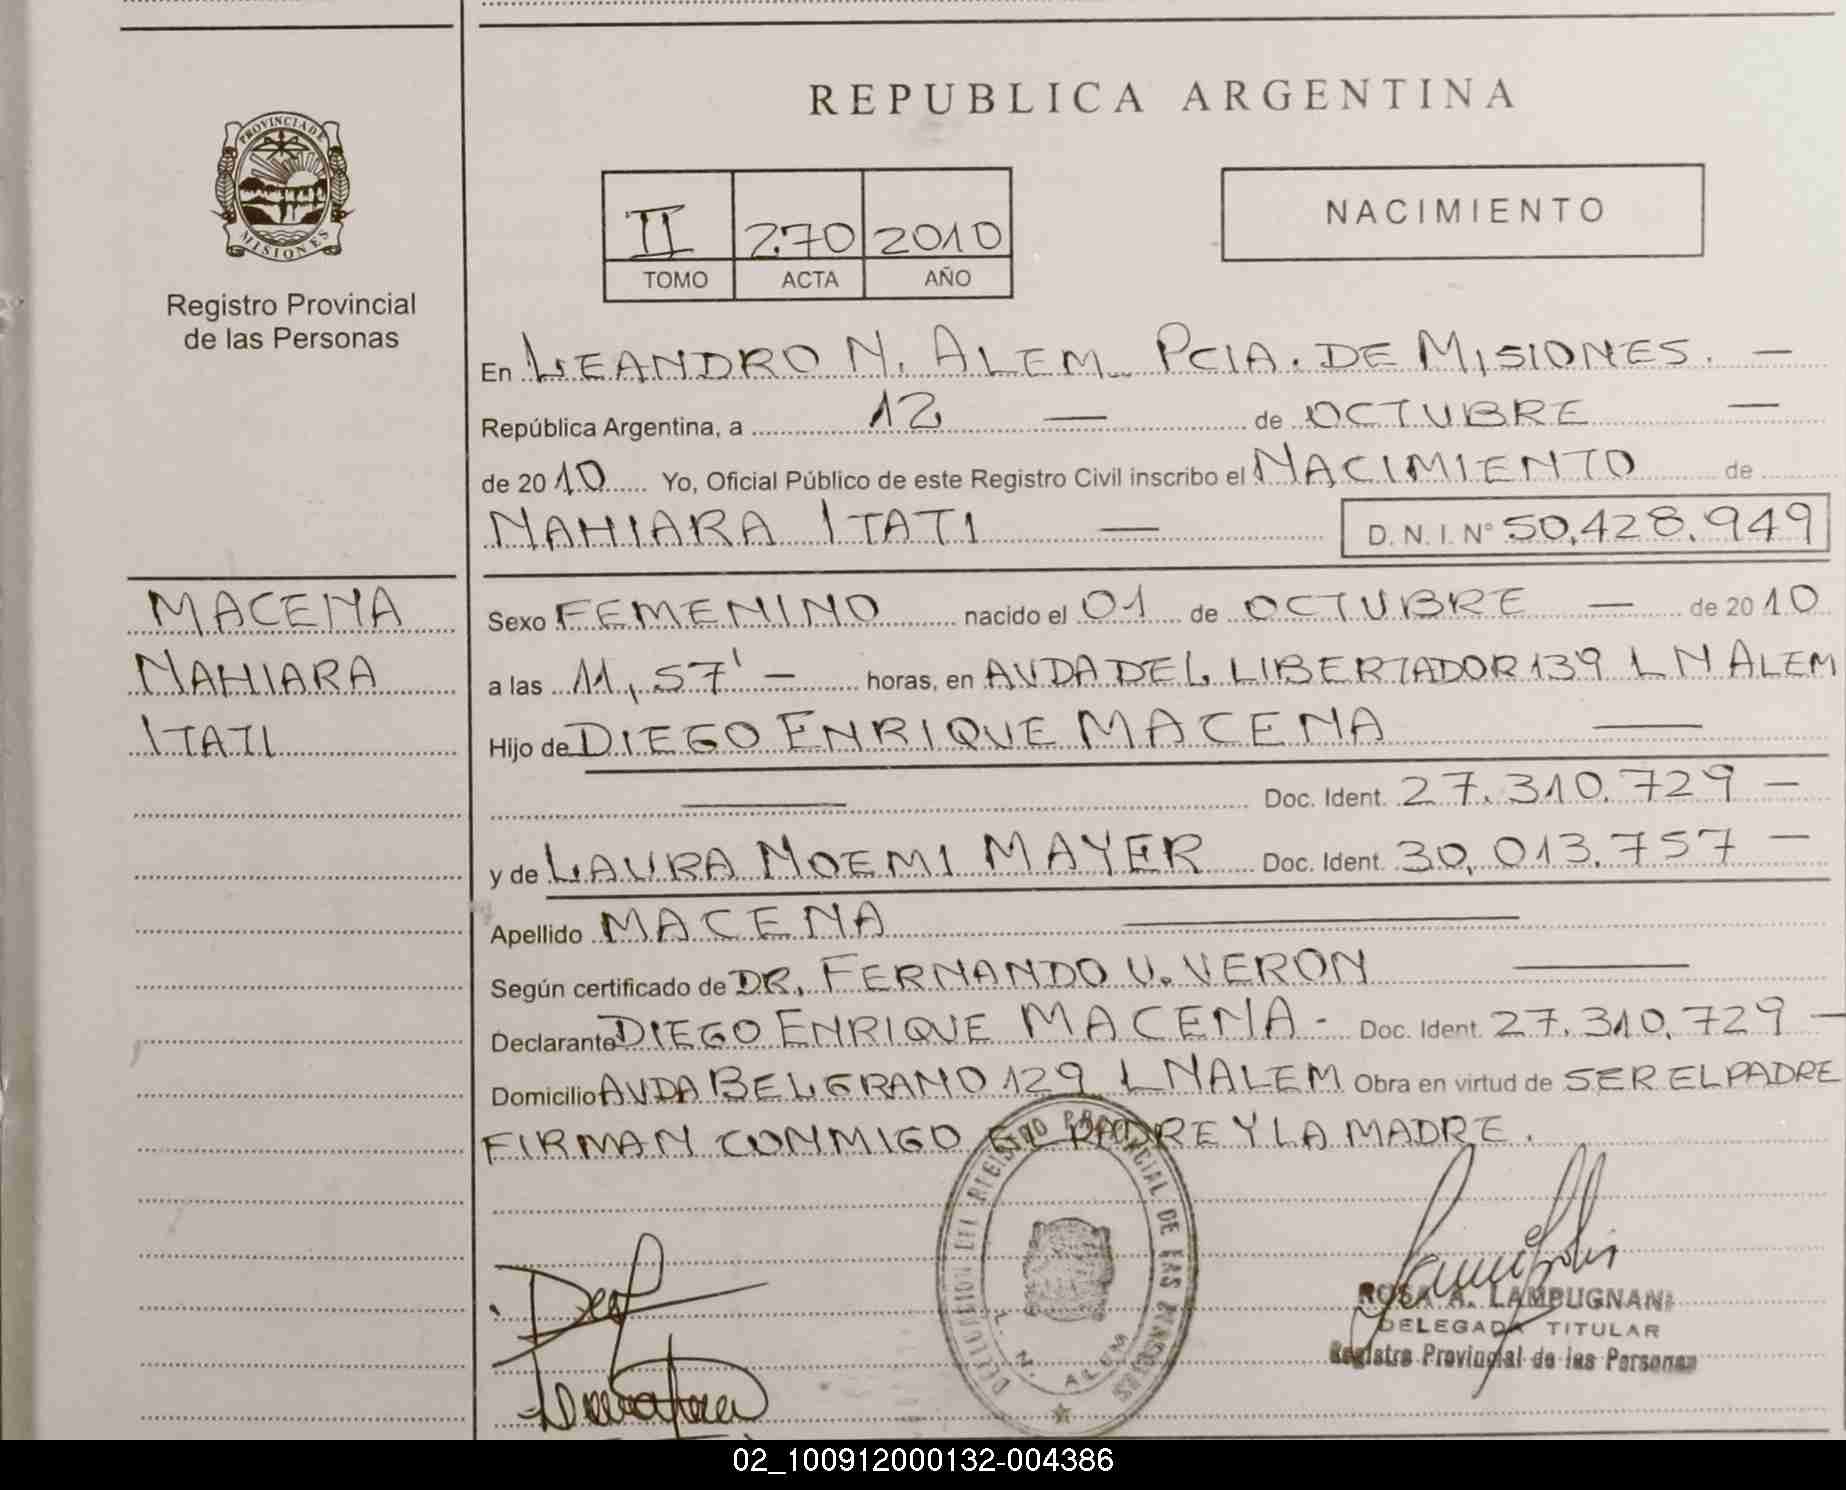 PROVINCIA DE
MISIONES
Registro Provincial
de las Personas
MACENA
NAHIARA
ITATI
REPUBLICA ARGENTINA
II 270 2010
TOMO ACTA AÑO
NACIMIENTO
En LEANDRO N. ALEM PCIA. DE MISIONES. —
República Argentina, a 12 — de OCTUBRE —
de 2010 Yo, Oficial Público de este Registro Civil inscribo el NACIMIENTO de
NAHIARA ITATI — D. N. I. N° 50,428.949
Sexo FEMENINO nacido el 01 de OCTUBRE — de 2010
a las 11,57' — horas, en AVDA DEL LIBERTADOR 139 L N ALEM
Hijo de DIEGO ENRIQUE MACENA —
— Doc. Ident. 27.310.729 —
y de LAURA NOEMI MAYER Doc. Ident. 30,013.757 —
Apellido MACENA —
Según certificado de DR. FERNANDO V. VERON —
Declarante DIEGO ENRIQUE MACENA - Doc. Ident. 27.310.729 —
Domicilio AVDA BELGRANO 129 L N ALEM Obra en virtud de SER EL PADRE
FIRMAN CONMIGO EL PADRE Y LA MADRE.
REGISTRO PROVINCIAL DE LAS PERSONAS
L. N. ALEM
ROSA A. LAMPUGNANI
DELEGADA TITULAR
Registro Provincial de las Personas
02_100912000132-004386